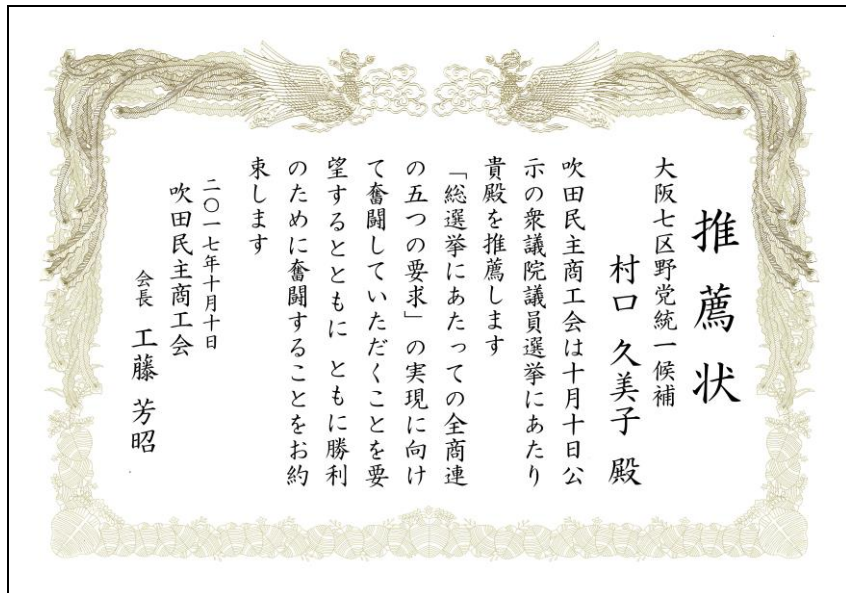 推薦状
大阪七区野党統一候補
村口 久美子 殿
吹田民主商工会は十月十日公
示の衆議院議員選挙にあたり
貴殿を推薦します
「総選挙にあたっての全商連
の五つの要求」の実現に向け
て奮闘していただくことを要
望するとともに ともに勝利
のために奮闘することをお約
束します
二〇一七年十月十日
吹田民主商工会
会長 工藤 芳昭